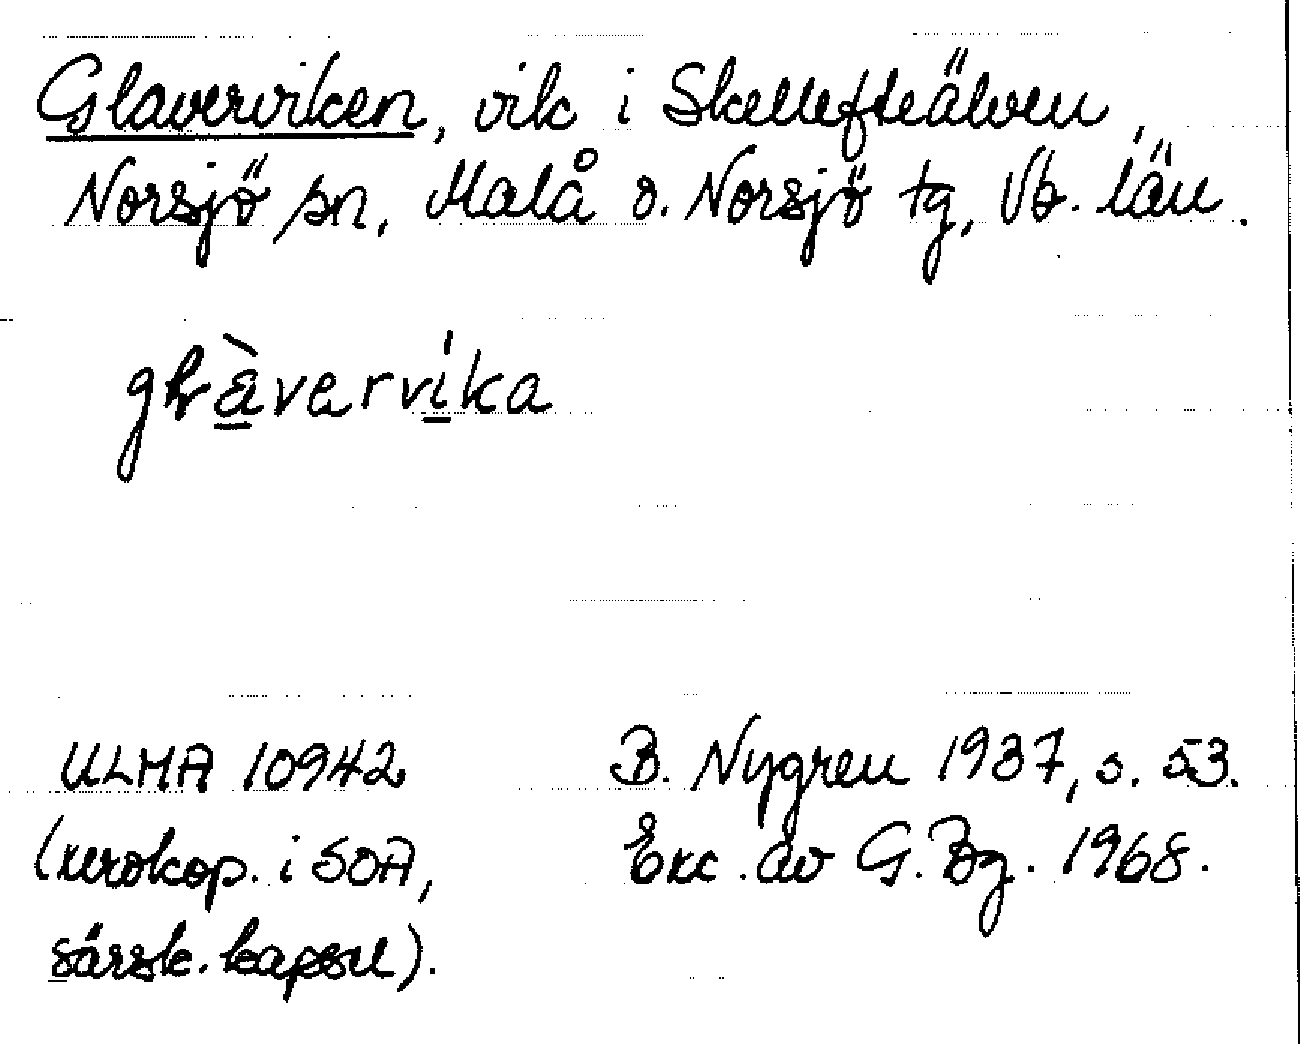 Glaverviken, vik i Skellefteälven,
Norsjö sn, Malå o. Norsjö tg, Vb. län.
ULMA 10942
(xerokop. i SOA,
särsk. kapsel).
B. Nygren 1937, s. 53.
Exc. av G. Bg. 1968.